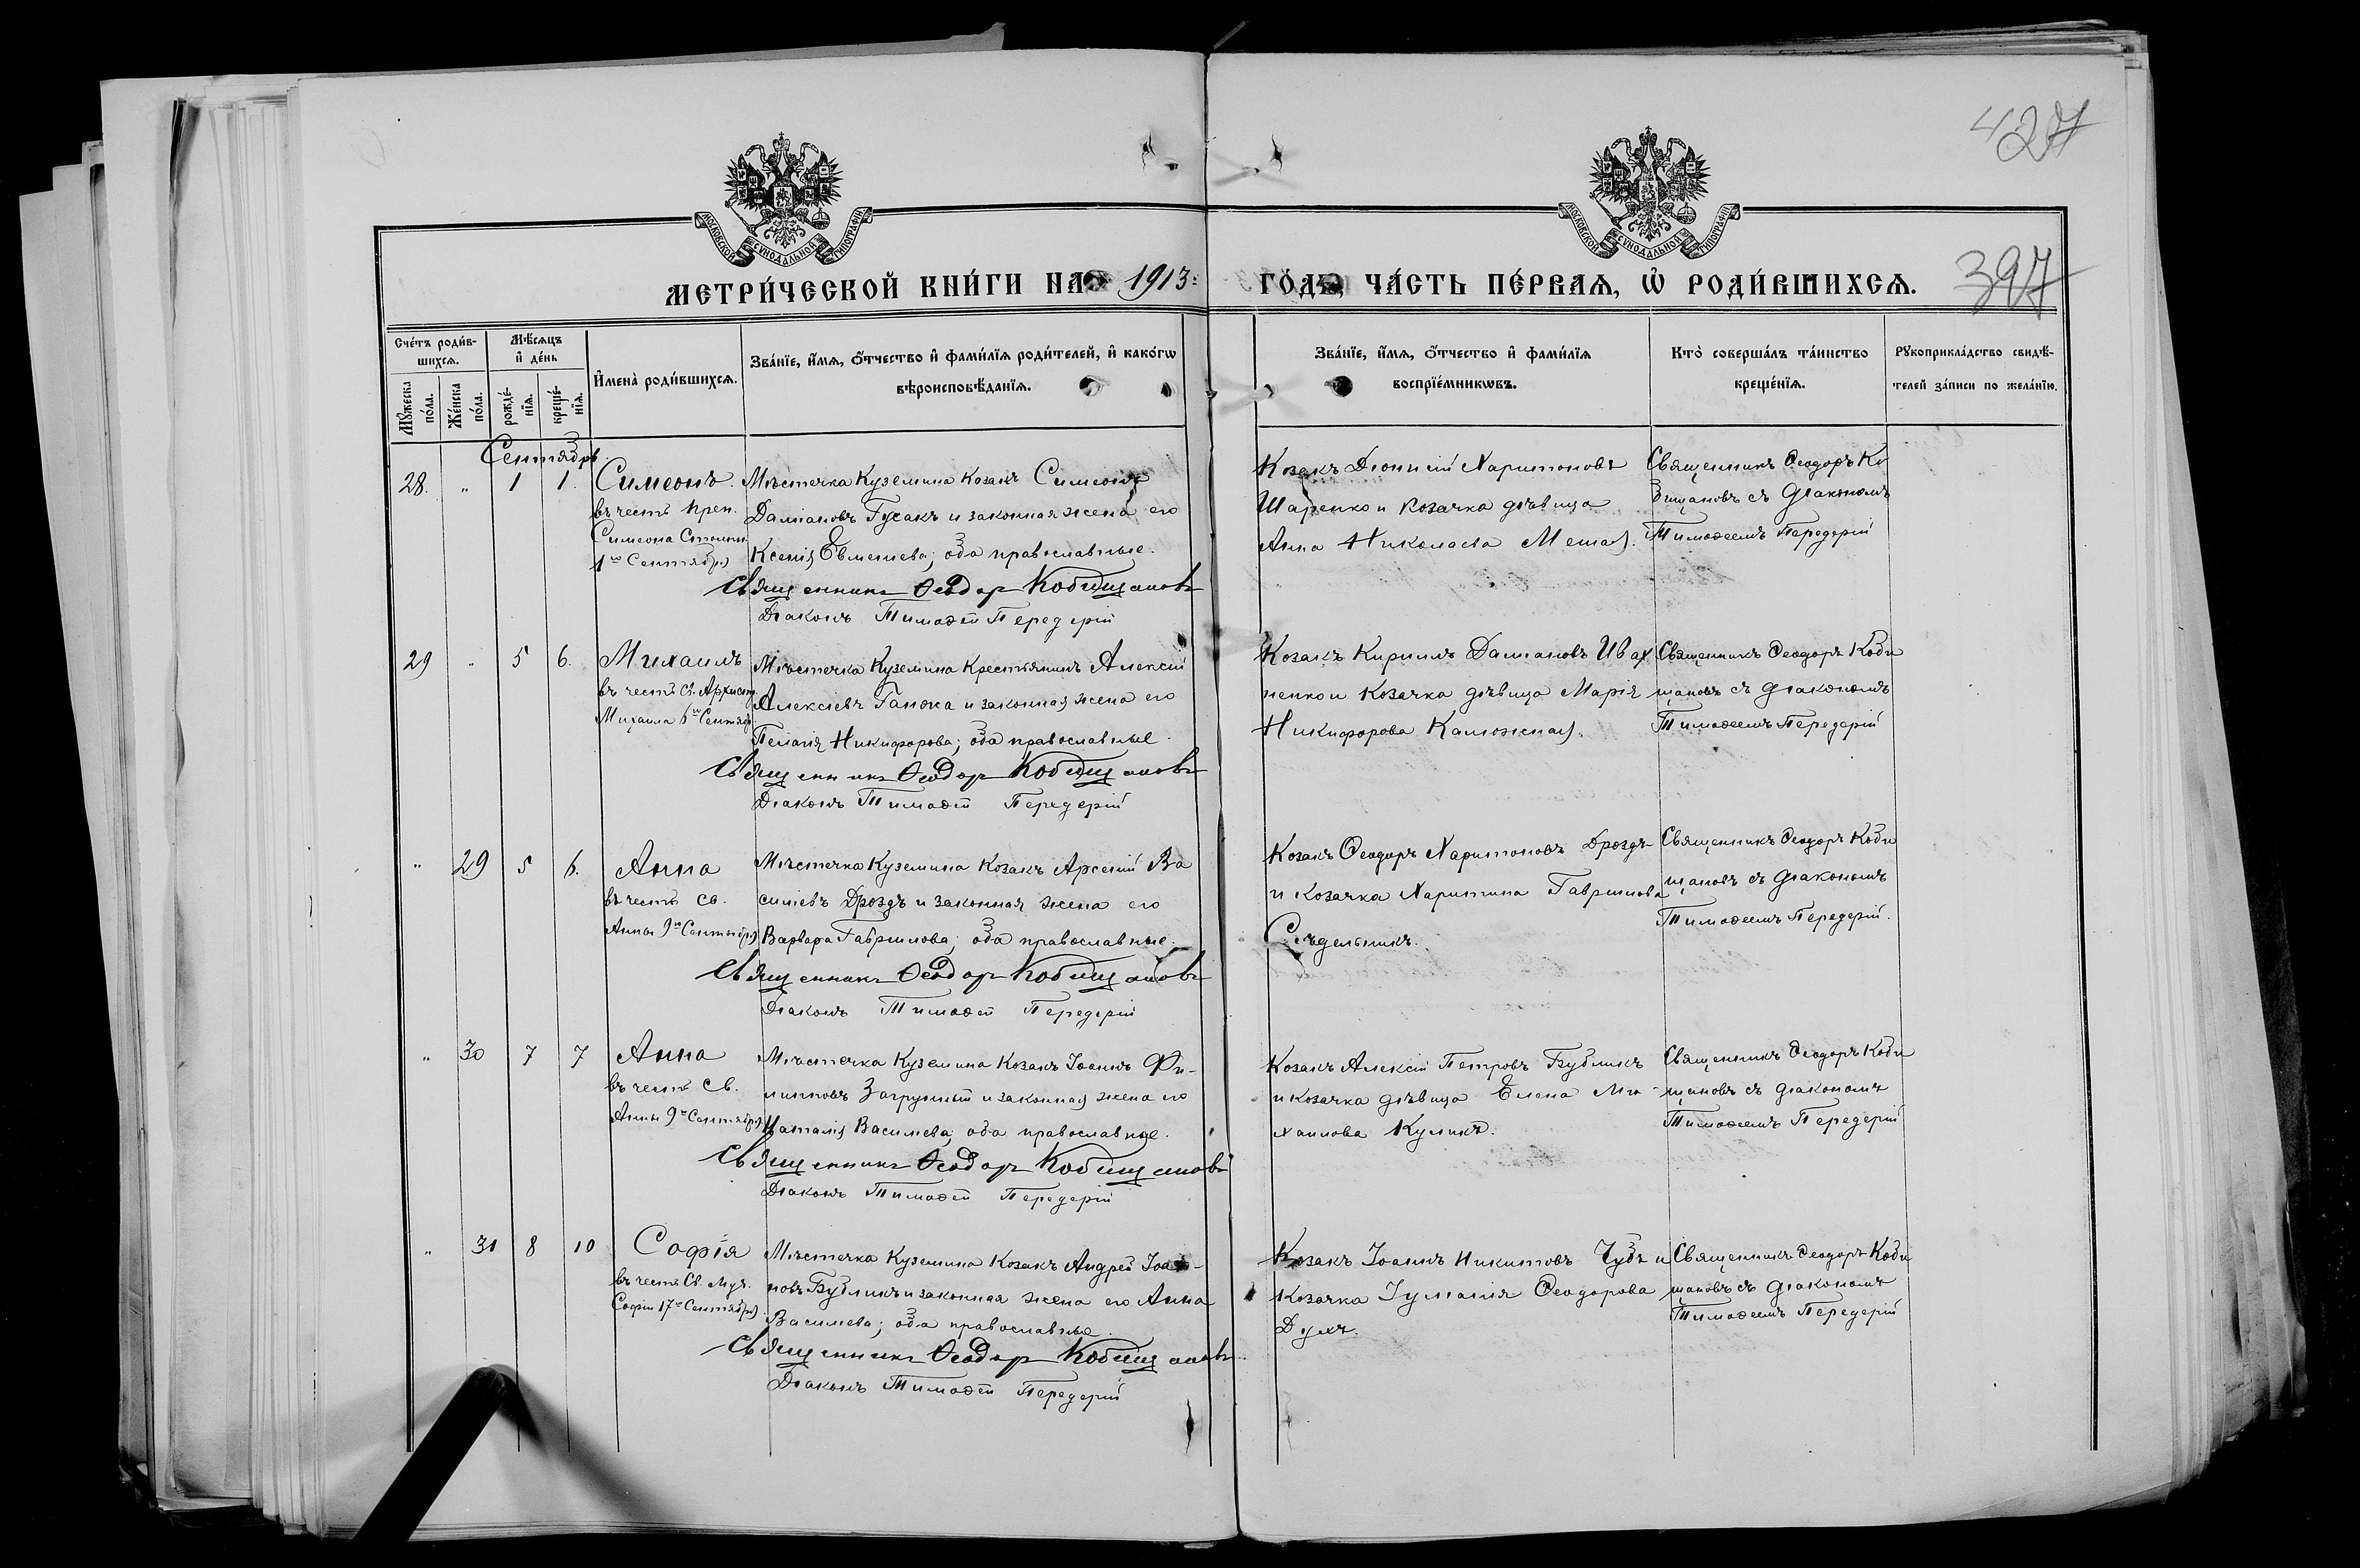 427
МОСКОВСКОЙ СѴНОДАЛЬНОЙ ТИПОГРАФІИ
МОСКОВСКОЙ СѴНОДАЛЬНОЙ ТИПОГРАФІИ
МЕТРИ́ЧЕСКОЙ КНИ́ГИ НА 1913: ГО́ДЪ, ЧА́СТЬ ПЕ́РВАѦ, Ѡ҆ РОДИ́ВШИХСѦ.
397
Сче́тъ роди́в-
шихсѧ.
Мꙋ́жеска по́ла.
Же́нска по́ла.
Мѣ́сѧцъ и҆ де́нь
рожде́-нїѧ.
креще́-нїѧ.
И҆мена̀ роди́вшихсѧ.
Зва́нїе, и҆́мѧ, ѻ҆́тчество и҆ фами́лїѧ роди́телей, и҆ како́гѡ
вѣроисповѣ́данїѧ.
Зва́нїе, и҆́мѧ, ѻ҆́тчество и҆ фами́лїѧ
воспрїе́мникѡвъ.
Кто̀ соверша́лъ та́инство
креще́нїѧ.
Рꙋкоприкла́дство свидѣ́-
телей за́писи по жела́нїю.
Сентябрь.
28. " 1 1.
Симеонъ.
въ честь преп.
Симеона Столпн.
1го Сентября
Мѣстечка Куземина Козакъ Симеонъ
Даміановъ Гусакъ и законная жена его
Ксенія Евменіева; оба православные.
Священникъ Ѳеодоръ Кобищановъ
Діаконъ Тимоѳей Передерій
Козакъ Діонисій Харитоновъ
Шаренко и козачка дѣвица
Анна Николаева
Священникъ Ѳеодоръ Ко
бищановъ съ діакономъ
Тимоѳеемъ Передерій
29 " 5 6.
Михаилъ
въ честь Св. Архист.
Михаила 6го Сентяб.
Мѣстечка Куземина Крестьянинъ Алексій
Алексіевъ Ганжа и законная жена его
Пелагія Никифорова; оба православные.
Священникъ Ѳеодоръ Кобищановъ
Діаконъ Тимоѳей Передерій
Козакъ Кириллъ Даміановъ Ивах
ненко и Козачка дѣвица Марія
Никифорова Калюжная.
Священникъ Ѳеодоръ Коби
щановъ съ діакономъ
Тимоѳеемъ Передерій
" 29 5 6.
Анна
въ честь Св.
Анны 9го Сентября
Мѣстечка Куземина Козакъ Арсеній Ва
силіевъ Дроздъ и законная жена его
Варвара Гавриилова; оба православные.
Священникъ Ѳеодоръ Кобищановъ
Діаконъ Тимоѳей Передерій
Козакъ Ѳеодоръ Харитоновъ Дроздъ
и козачка Харитина Гавриилова
Сѣдельникъ.
Священникъ Ѳеодоръ Коби
щановъ съ діакономъ
Тимоѳеемъ Передерій.
" 30 7 7
Анна
въ честь Св.
Анны 9го Сентября
Мѣстечка Куземина Козакъ Іоаннъ Фи-
липповъ Загрунный и законная жена его
Наталія Василіева; оба православные.
Священникъ Ѳеодоръ Кобищановъ
Діаконъ Тимоѳей Передерій
Козакъ Алексій Петровъ Бубликъ
и козачка дѣвица Елена Ми-
хаилова Куликъ.
Священникъ Ѳеодоръ Коби
щановъ съ діакономъ
Тимоѳеемъ Передерій
" 31 8 10
Софія
въ честь Св. Муч.
Софіи 17го Сентября
Мѣстечка Куземина Козакъ Андрей Іоан-
новъ Бубликъ и законная жена его Анна
Василіева; оба православные.
Священникъ Ѳеодоръ Кобищановъ
Діаконъ Тимоѳей Передерій
Козакъ Іоаннъ Никитовъ Чубъ и
Козачка Іуліанія Ѳеодорова
Духъ.
Священникъ Ѳеодоръ Коби
щановъ съ діакономъ
Тимоѳеемъ Передерій